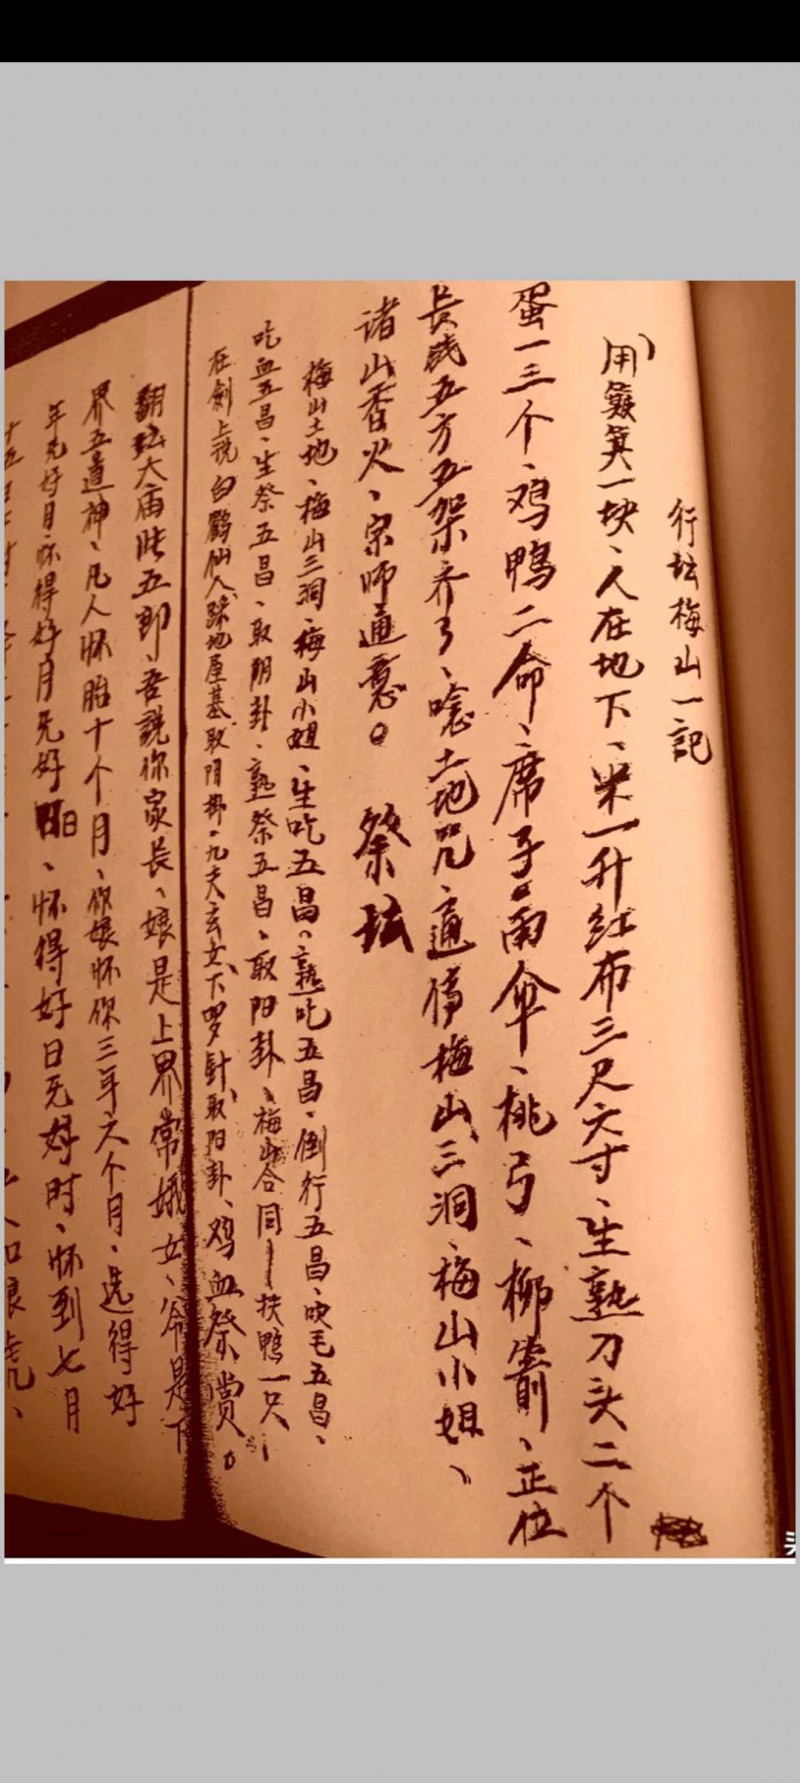 行坛梅山一記
用簸箕一块、人在地下、米一升红布三尺六寸、生熟刀头二个
蛋一三个、鸡鸭二命、席子、雨伞、桃弓、柳箭、正位
長钱五方五架齐了、唸土地咒、通传梅山三洞、梅山小姐、
诸山香火、宗师通意。 祭坛
梅山土地、梅山三洞、梅山小姐、生吃五昌、熟吃五昌、倒行五昌、吹毛五昌、
吃血五昌、生祭五昌、取阴卦、熟祭五昌、取阳卦、梅山合同一扶鸭一只、
在劍上説白鶴仙人踩地屋基取阴卦、九天玄女、下罗针、取阳卦、鸡血祭赏。
翻坛大庙张五郎、吾説你家長、娘是上界常娥女、爺是下
界五道神、凡人怀胎十个月、你娘怀你三年六个月、选得好
年无好月、怀得好月无好日、怀得好日无好时、怀到七月
十五日